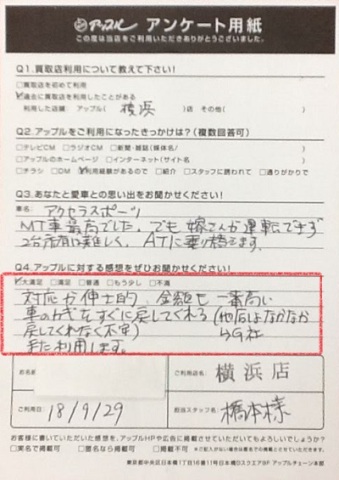 アップル アンケート用紙
この度は当店をご利用いただきありがとうございました。
Q1.買取店利用について教えて下さい!
□買取店を初めて利用
☑過去に買取店を利用したことがある
利用した店舗: アップル( 横浜 )店 その他( )
Q2.アップルをご利用になったきっかけは?(複数回答可)
□テレビCM □ラジオCM □新聞・雑誌(媒体名/ )
□アップルのホームページ □インターネット(サイト名 )
□チラシ □DM ☑利用経験があるので □紹介 □スタッフに誘われて □通りがかりで
Q3.あなたと愛車との思い出をお聞かせください。
車名: アクセラスポーツ
MT車最高でした。でも嫁さんが運転できず
2台所有は難しく、ATに乗り換えます。
Q4.アップルに対する感想をぜひお聞かせください。
☑大満足 □満足 □普通 □もう少し □不満
対応が紳士的、金額も一番高い
車のカギをすぐに戻してくれる(他店はなかなか
戻してくれなく不安) G社
また利用します。
お名前
ご利用店名: 横浜店
ご利用日: 18/9/29
担当スタッフ名: 橋本様
お客様に書いていただいた感想を、アップルHPや広告に掲載させていただいてもよろしいでしょうか?
□実名で掲載可 □匿名なら掲載可 □掲載不可
東京都中央区日本橋1丁目16番11号日本橋Dスクエア8F アップルチェーン本部